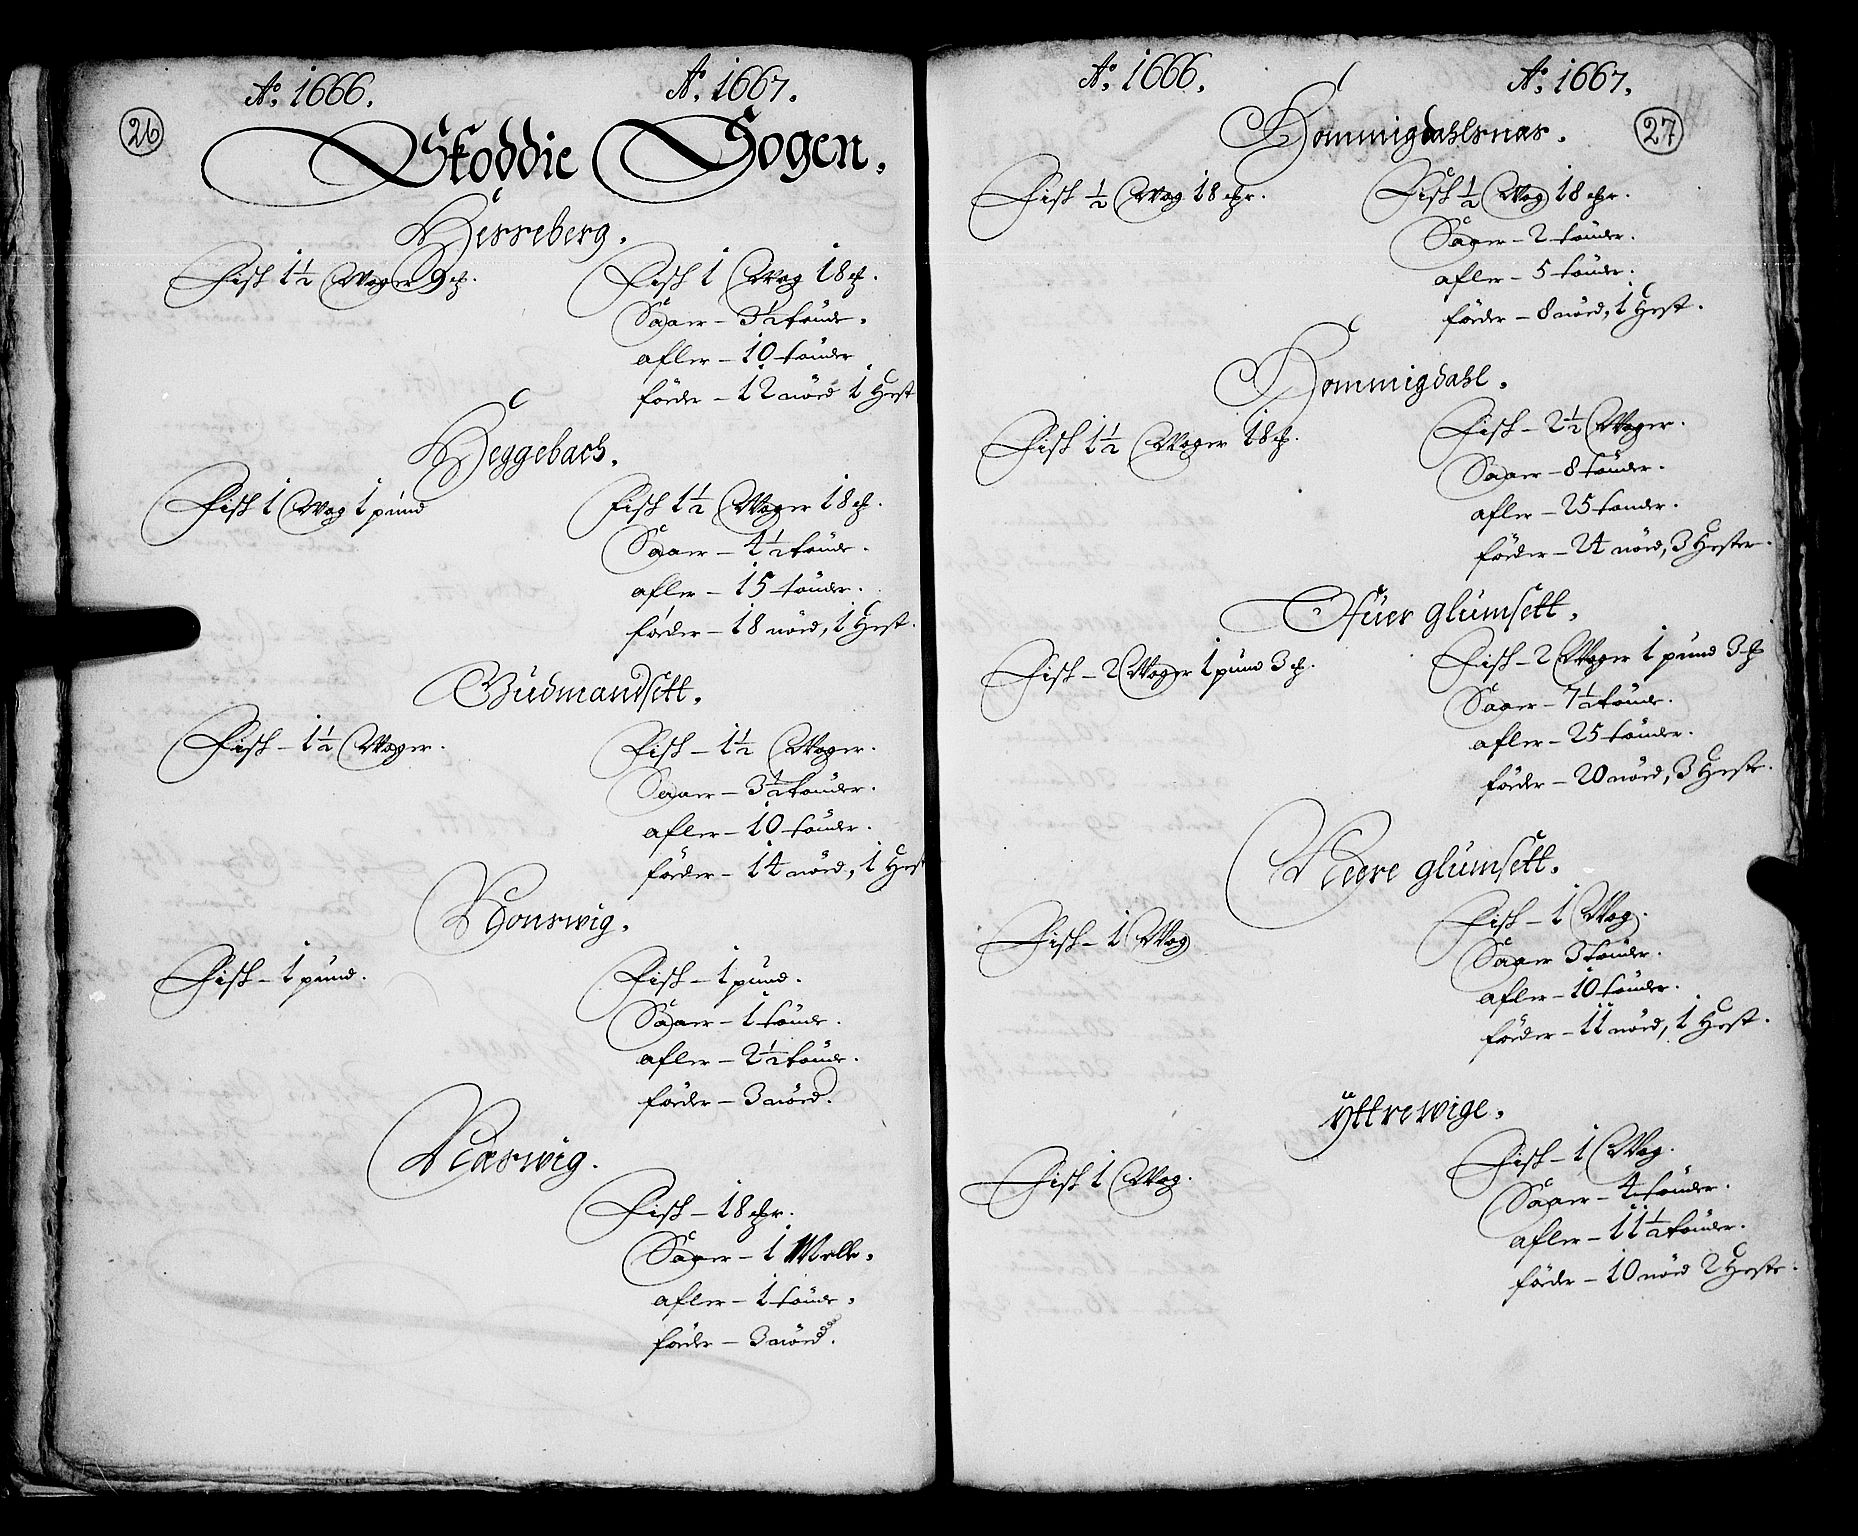 26
Ao. 1666. Ao. 1667.
Skoddie Sogen.
Herreberg.
Fisk 1½ Woger 9 ℔. Fisk 1 Wog 18 ℔.
Saaer – 3½ tønde.
afler – 10 tønder
føder – 12 nød 1 Hest
Heggebach.
Fisk 1 Wog 1 pund Fisk 1½ Woger 18 ℔.
Saaer – 4½ tønde.
afler – 15 tønder.
føder – 18 nød, 1 Hest.
Gudmandsett.
Fisk – 1½ Woger. Fisk – 1½ Woger.
Saaer – 3½ tønder.
afler – 10 tønder.
føder – 14 nød, 1 Hest
Honswig.
Fisk – 1 pund. Fisk – 1 pund.
Saaer – 1 tønde.
afler – 2½ tønde.
føder – 3 nød.
Fisk – 18 ℔r.
Saaer – 1 Melle.
afler – 1 tønde.
føder – 3 nød.
27
Ao. 1666. Ao. 1667.
Hommigdahlsnas.
Fisk ½ Wog 18 ℔r. Fisk ½ Wog 18 ℔r.
Saaer – 2 tønder.
afler – 5 tønder.
føder – 8 nød, 1 Hest.
Hommigdahl.
Fisk 1½ Woger 18 ℔. Fisk – 2½ Woger.
Saaer – 8 tønder.
afler – 25 tønder.
føder – 24 nød, 3 Hester.
Ofuer glumsett.
Fisk – 2 Woger 1 pund 3 ℔. Fisk – 2 Woger 1 pund 3 ℔
Saaer – 7½ tønde.
afler – 25 tønder.
føder – 20 nød, 3 Heste.
Neere glumsett.
Fisk – 1 Wog Fisk – 1 Wog.
Saaer 3 tønder.
afler – 10 tønder.
føder – 11 nød, 1 Hest.
Yttrewige.
Fisk 1 Wog. Fisk – 1 Wog.
Saaer – 4 tønder.
afler – 11½ tønder.
føder – 10 nød 2 Heste.